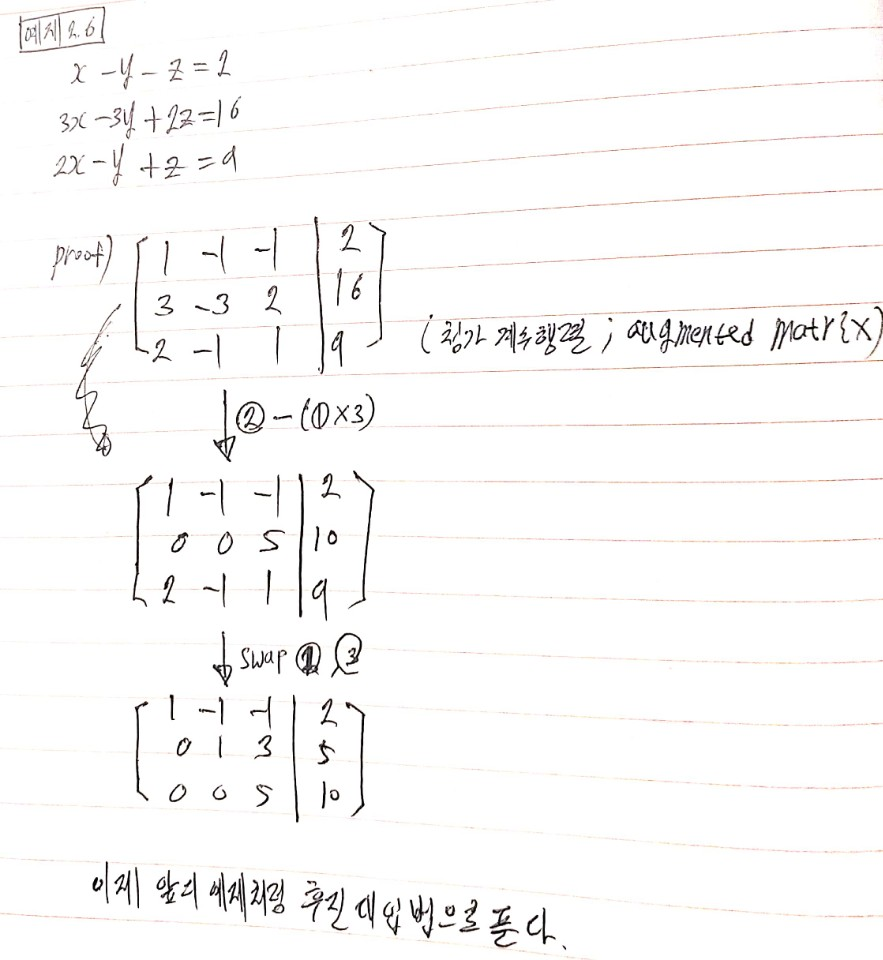 예제 2.6
x - y - z = 2
3x - 3y + 2z = 16
2x - y + z = 9
proof) [ 1 -1 -1 | 2 ]
3 -3 2 | 16
2 -1 1 | 9 (첨가 계수행렬 ; augmented matrix)
↓ ② - (① × 3)
[ 1 -1 -1 | 2 ]
0 0 5 | 10
2 -1 1 | 9
↓ swap ③
[ 1 -1 -1 | 2 ]
0 1 3 | 5
0 0 5 | 10
이제 앞의 예제처럼 후진대입법으로 푼다.